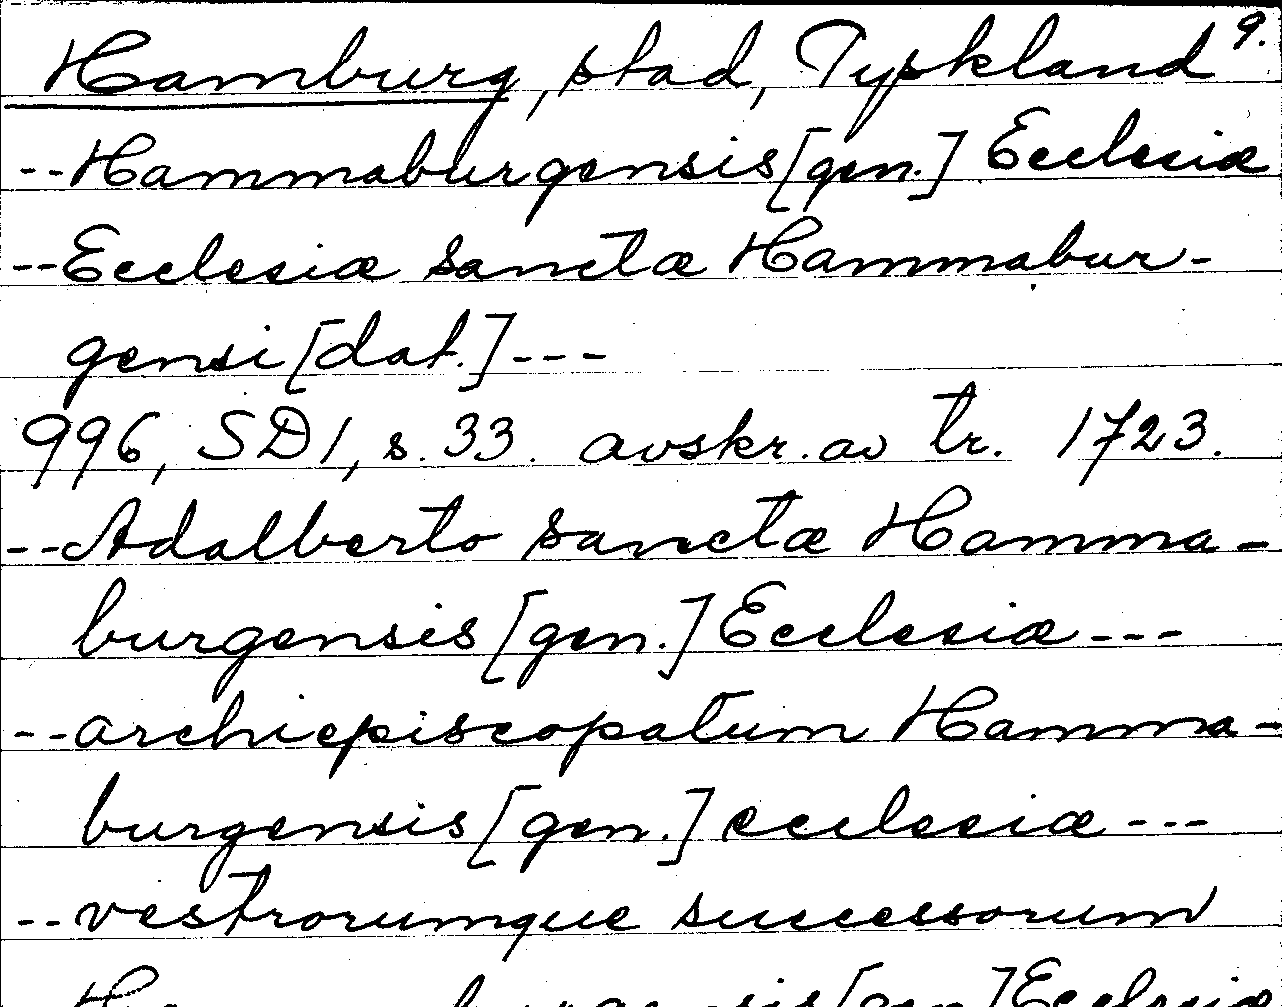 Hamburg, stad, Tyskland 9.
--Hammaburgensis [gen.] Ecclesiæ
--Ecclesiæ sanctæ Hammabur-
gensi [dat.]---
996, SD1, s. 33. avskr. av tr. 1723.
--Adalberto sanctæ Hamma-
burgensis [gen.] Ecclesiæ---
--archiepiscopatum Hamma-
burgensis [gen.] ecclesiæ---
--vestrorumque successorum
[gen.] Ecclesiæ